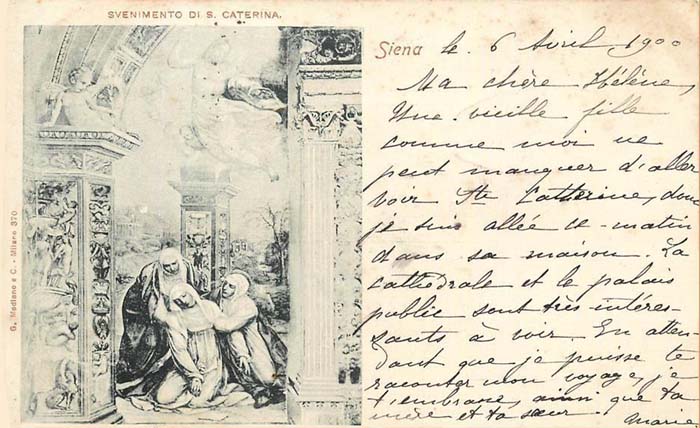 SVENIMENTO DI S. CATERINA.
G. Modiano e C. - Milano 370
Siena le 6 Avril 1900
Ma chère Hélène,
Une vieille fille
comme moi ne
peut manquer d'aller
voir Ste Catherine, donc
je suis allée ce matin
dans sa maison. La
cathédrale et le palais
public sont très intéres-
sants à voir. En atten-
dant que je puisse te
raconter mon voyage, je
t'embrasse, ainsi que ta
mère et ta sœur.
Marie